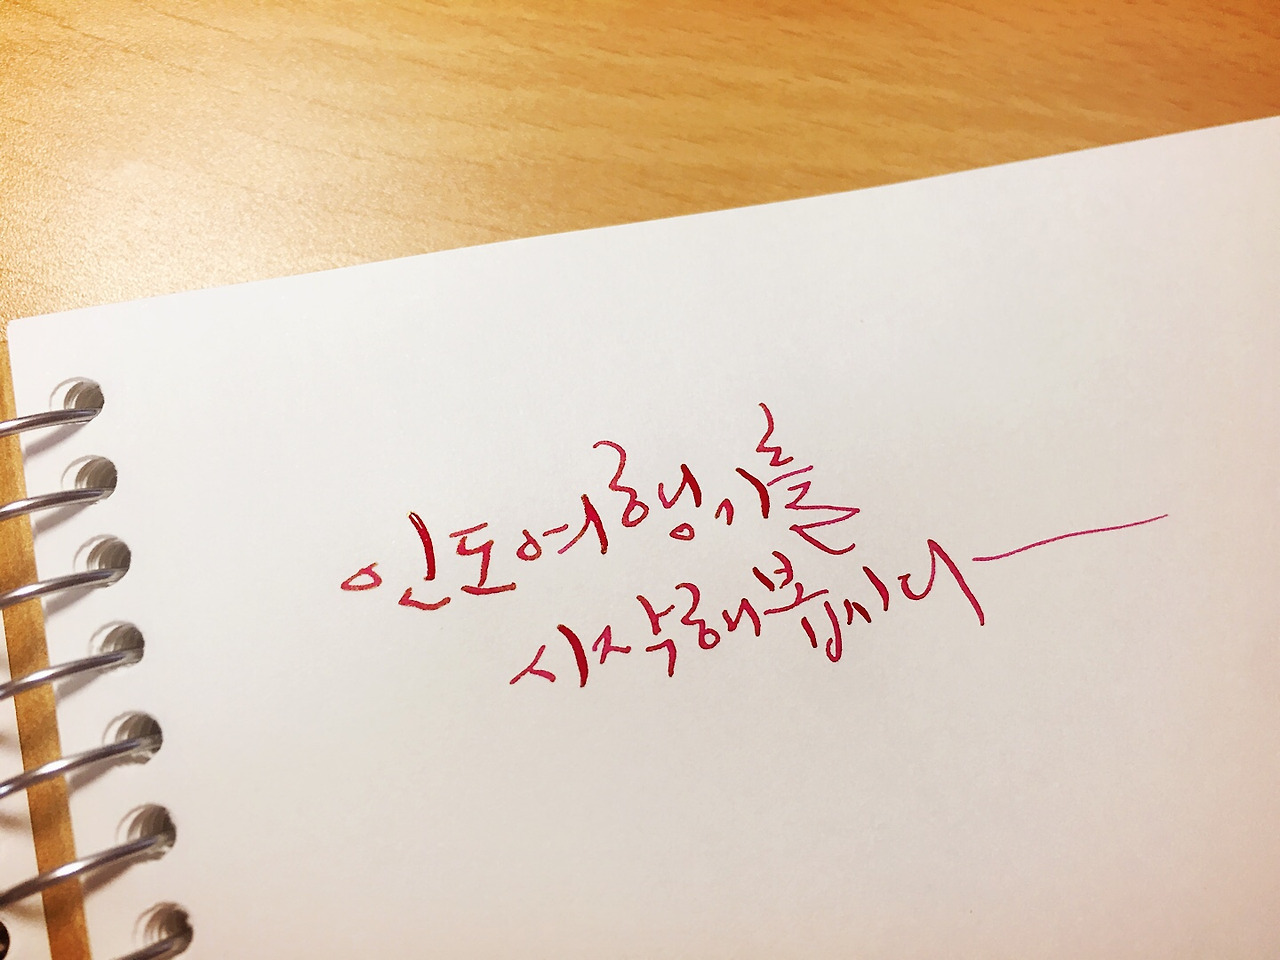 인도여행기를
시작해봅시다